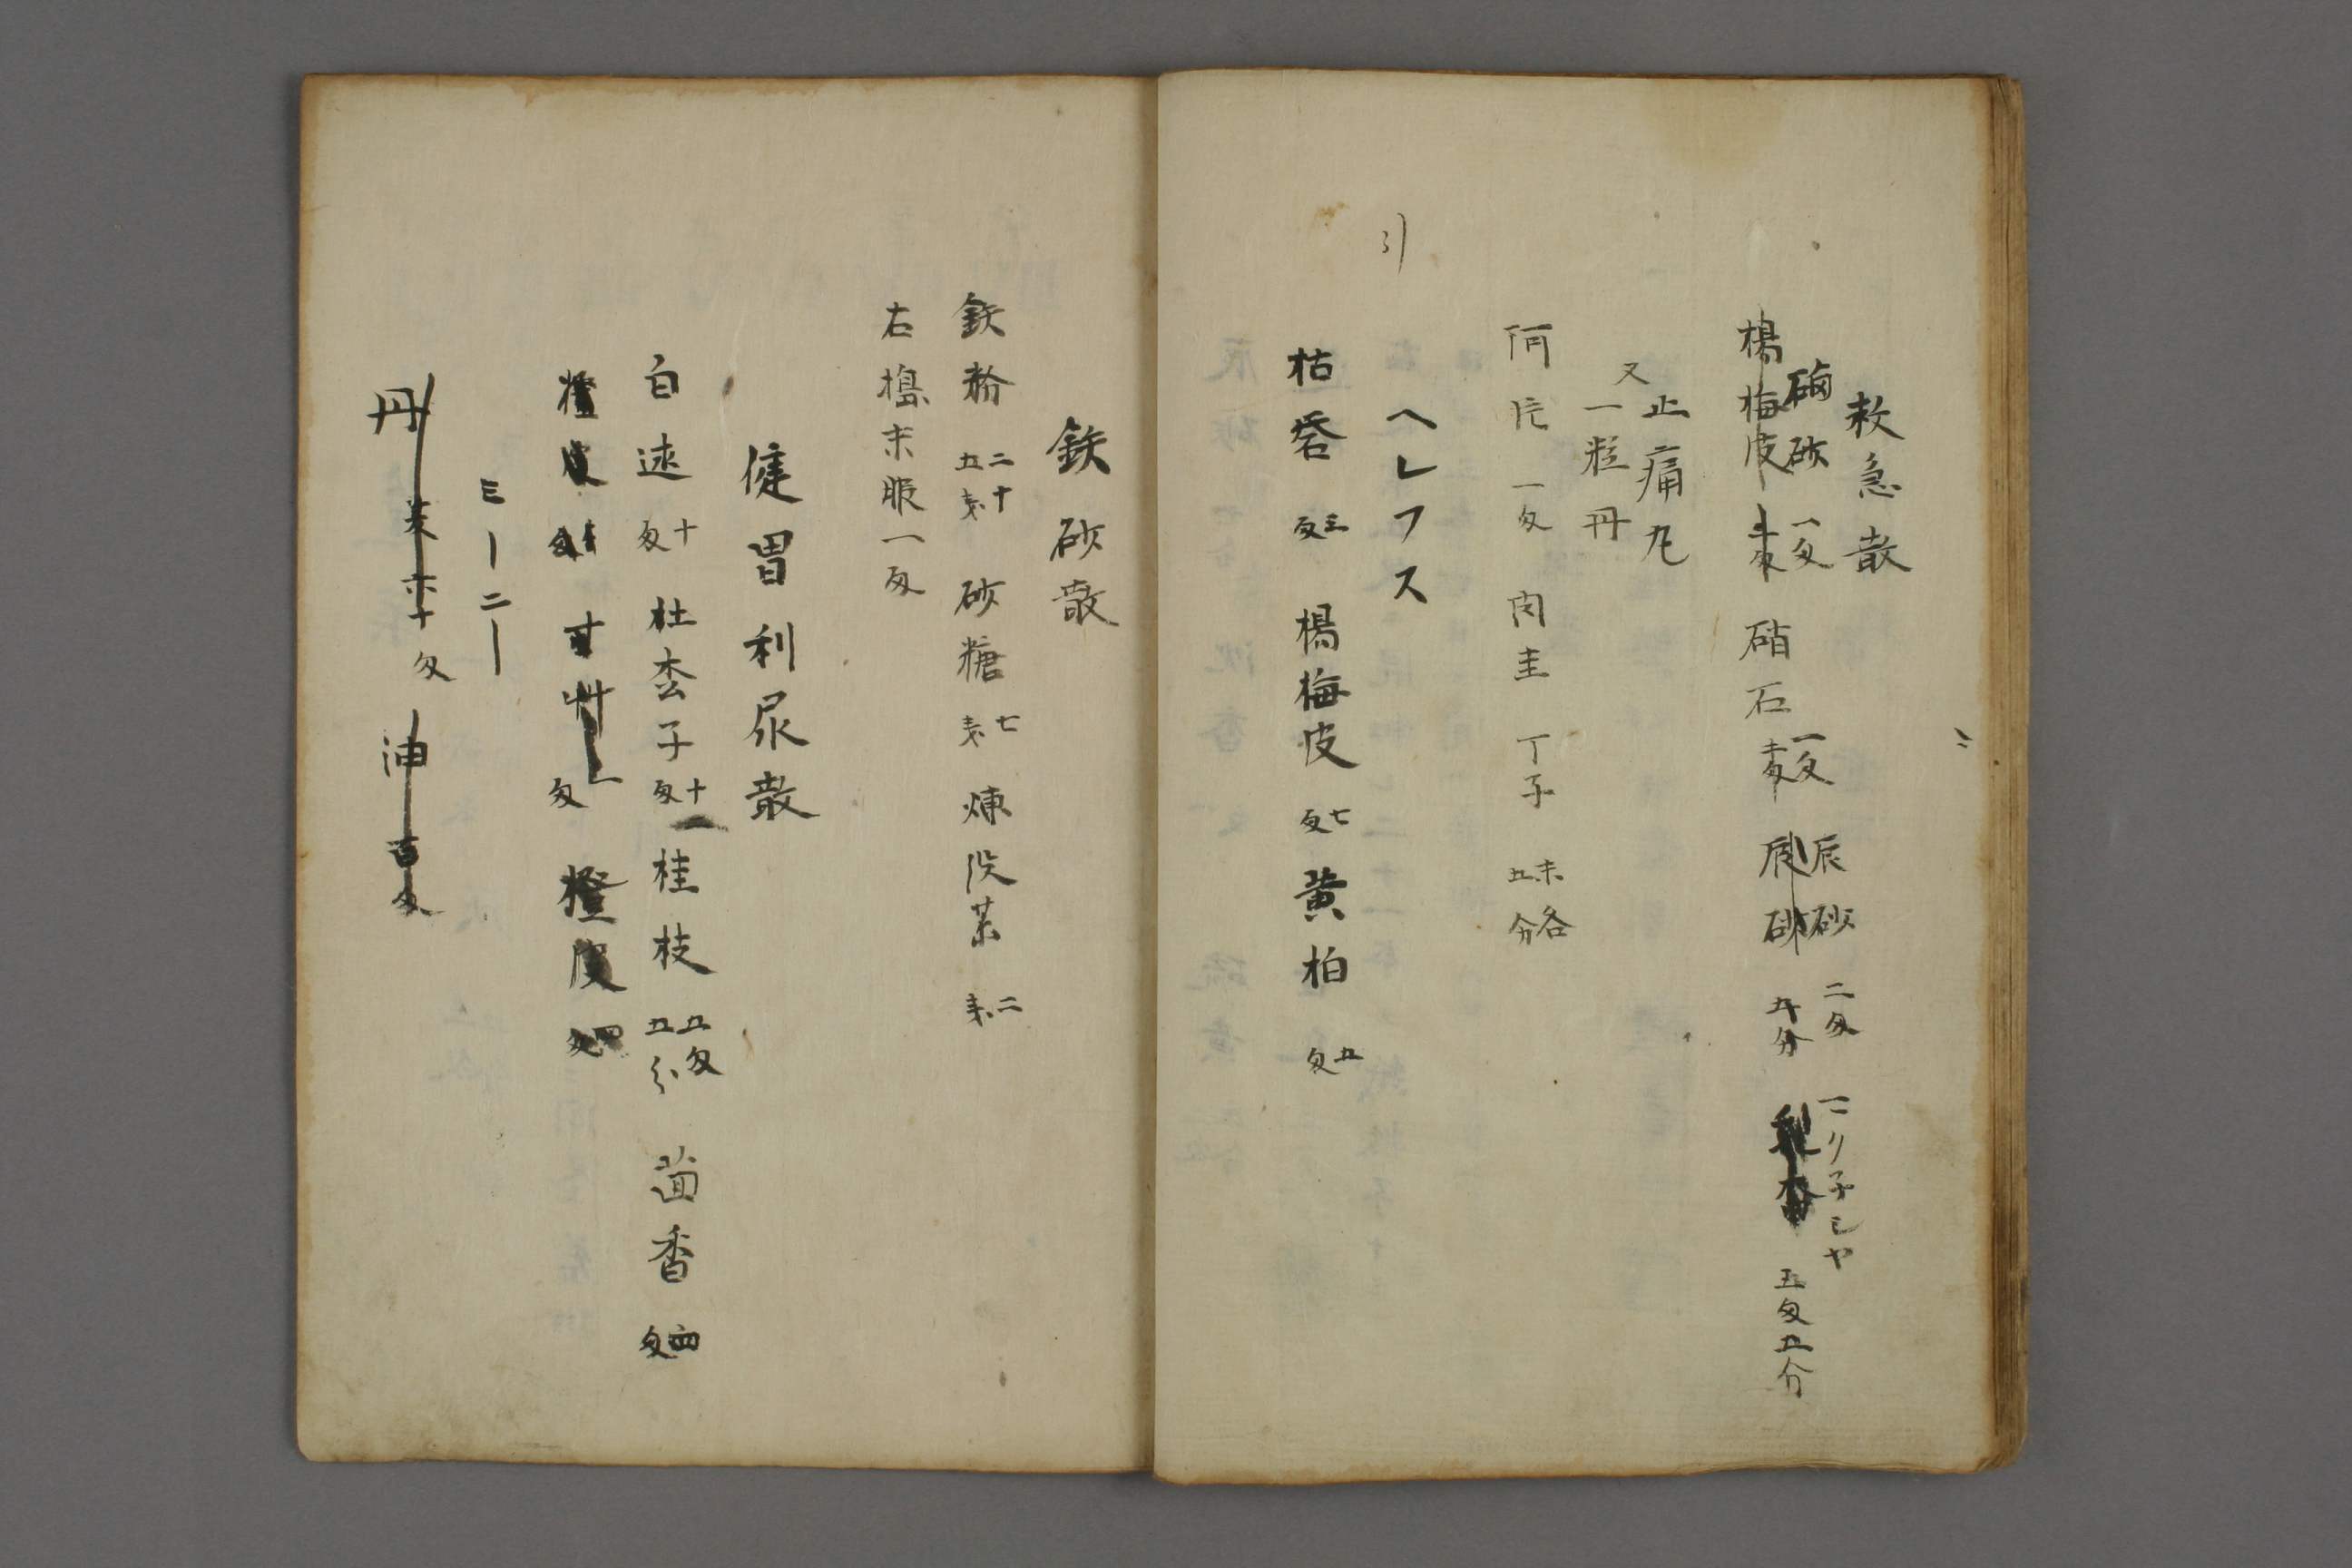 救急散
硇砂 一匁 一匁 辰砂 二匁 一リ子シヤ
楊梅皮 硝石 辰砂 五分 五匁五分
止痛丸
又一粒丹
阿片 一匁 肉圭 丁子 末各五分
ヘレフス
枯礬 三匁 楊梅皮 七匁 黄柏 五匁
鉄砂散
鉄粉 二十五 砂糖 七 煉 二
右搗末服一匁
健胃利尿散
白 十匁 杜松子 十匁 桂枝 五匁五分 茴香 四匁
橙皮 甘艸 匁 橙皮 四匁
三ー二ー
丹 六十匁 油 百匁